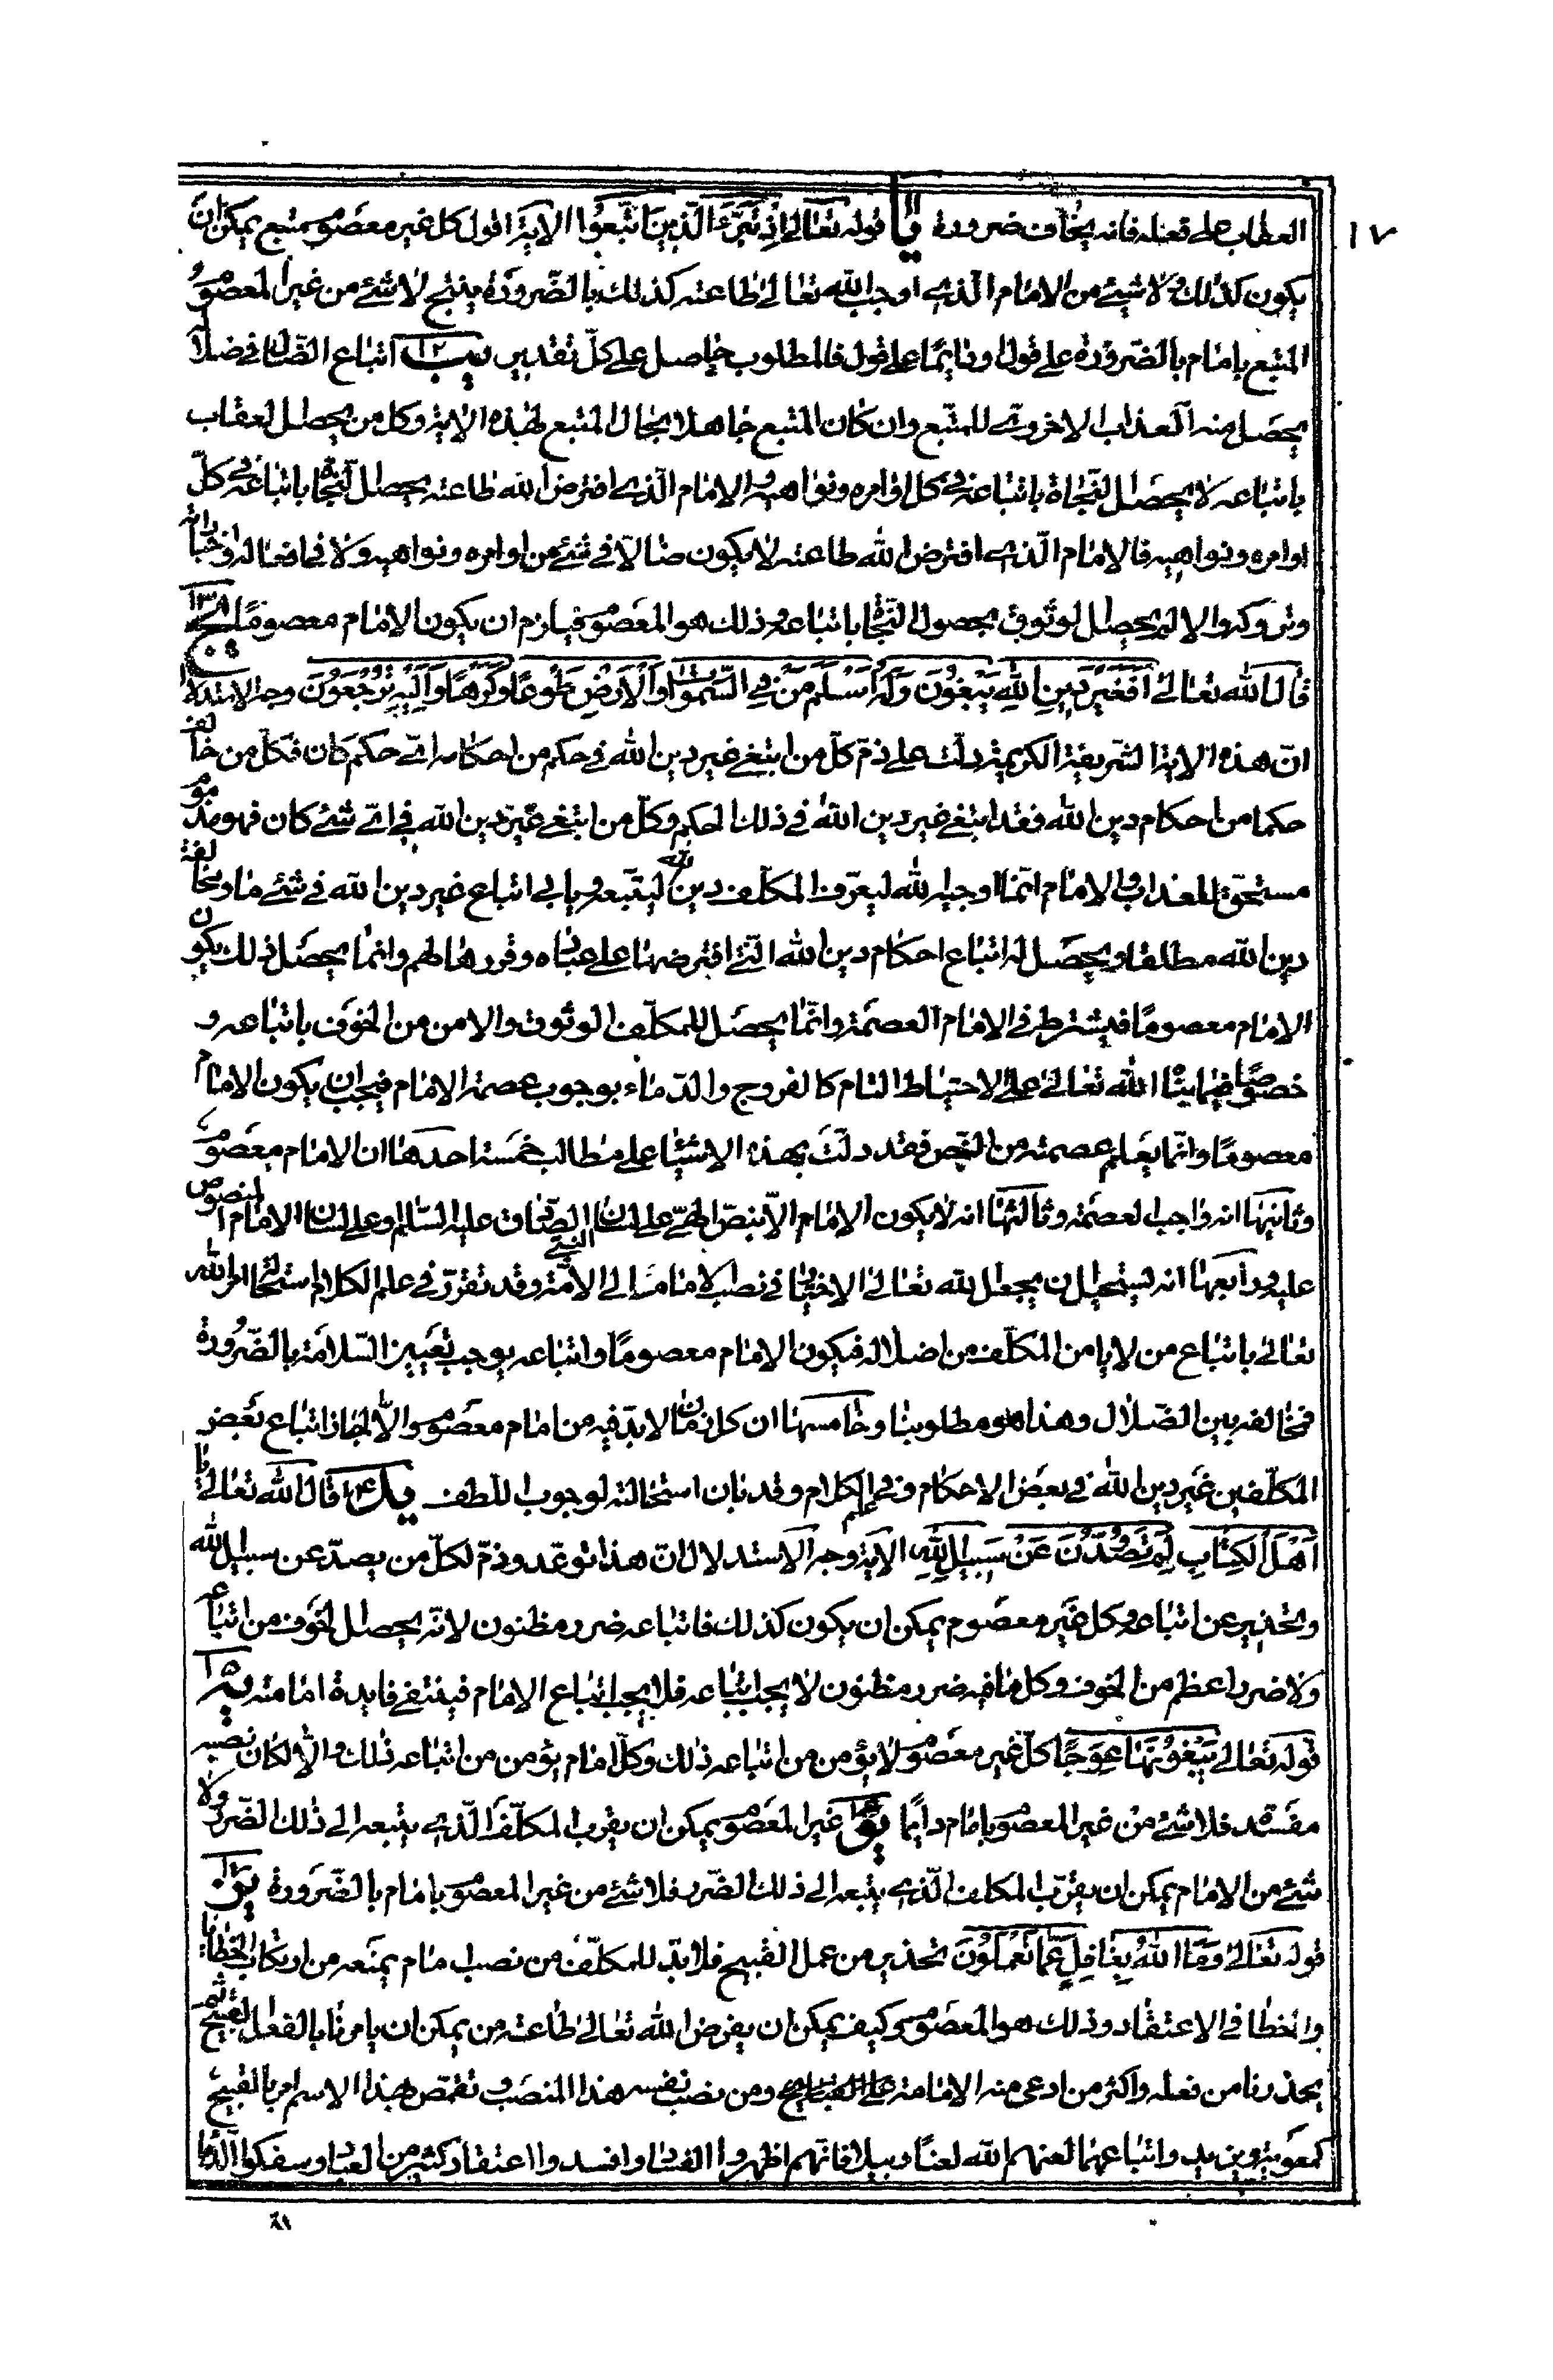 ١٧
العقاب على فعله فانه يخاف ضرورة يا قوله تعالى اذ تبرّء الذين اتّبعوا الاية اقول كل غير معصوم متبع يمكن ان
يكون كذلك ولا شيئ من الامام الذى اوجب الله تعالى طاعته كذلك بالضّرورة ينتج لا شئ من غير المعصوم
المتبع بامام بالضّرورة على قول ودائمًا على قول فالمطلوب حاصل على كلّ تقدير يب اتباع الضّال فى ضلاله
يحصل منه العذاب الاخروىّ للمتّبع وان كان المتبع جاهلا بحال المتبع لهذه الاية وكل من يحصل العقاب
باتباعه لا يحصل النّجاة باتباعه فى كل اوامره ونواهيه والامام الّذى افترض الله طاعته يحصل النّجاة باتباعه فى كلّ
اوامره ونواهيه فالامام الّذى افترض الله طاعته لا يكون ضالّا فى شئ من اوامره ونواهيه ولا فى افعاله
وتروكه والا لم يحصل لوثوق بحصول النّجاة باتباعه وذلك هو المعصوم فيلزم ان يكون الامام معصومًا يج
قال الله تعالى افغير دين الله يبغون وله اسلم من فى السّموات والارض طوعًا وكرهًا واليه ترجعون وجه الاستدلال
انّ هذه الاية الشّريفة الكريمة دلّت على ذمّ كلّ من ابتغى غير دين الله فى حكم من احكامه اىّ حكم كان فكلّ من خالف
حكما من احكام دين الله فقد ابتغى غير دين الله فى ذلك الحكم وكلّ من ابتغى غير دين الله فى اىّ شئ كان فهو مذموم
مستحقّ للعذاب والامام انّما اوجبه الله ليعرّف المكلّف دين الله ليتّبعه ويابى اتباع غير دين الله فى شئ ما ومخالفة
دين الله مطلقا ويحصل له اتباع احكام دين الله الّتى افترضها على عباده وقررها لهم وانّما يحصل ذلك بكون
الامام معصومًا فيشترط فى الامام العصمة وانّما يحصل للمكلّف الوثوق والامن من الخوف باتباعه و
خصوصًا فيما بيّنا الله تعالى على الاحتياط التام كالفروج والدّماء بوجوب عصمة الامام فيجب ان يكون الامام
معصومًا وانّما يعلم عصمته من النّص فقد دلّت هذه الاشياء على مطالب خمسة احدها ان الامام معصوم
وثانيها انه واجب لعصمته وثالثها انه لا يكون الامام الّا بنصّ الهىّ على لسان النبىّ الصّادق عليه السّلام وعلى لسان الامام المنصوص
عليه ورابعها انه يستحيل ان يجعل الله تعالى الاختيار فى نصب الامام الى الامّة وقد تقرّر فى علم الكلام استحالة امر الله
تعالى باتباع من لا يامن المكلّف من اضلاله فيكون الامام معصومًا واتباعه يوجب تعيين السّلامة بالضّرورة
فمخالفه بين الضّلال وهذا هو مطلوبنا وخامسها ان كل زمان لا بدّ فيه من امام معصوم والّا لجاز اتباع بعض
المكلّفين غير دين الله فى بعض الاحكام وفى علم الكلام وقد بان استحالته لوجوب اللطف يد قال الله تعالى يا
اهل الكتاب لم تصدّون عن سبيل الله الاية وجه الاستدلال انّ هذا توعّد وذمّ لكلّ من يصدّ عن سبيل الله
وتحذير عن اتباعه وكل غير معصوم يمكن ان يكون كذلك فاتباعه ضرر مظنون لانّه يحصل الخوف من اتباعه
ولا ضرر اعظم من الخوف وكل ما فيه ضرر مظنون لا يجب اتباعه فلا يجب اتباع الامام فينتفى فايدة امامته يه
قوله تعالى يبغونها عوجًا كلّ غير معصوم لا يؤمن من اتباعه ذلك وكلّ امام يؤمن من اتباعه ذلك والّا لكان نصبه
مفسدة فلا شئ من غير المعصوم بامام دايمًا يو غير المعصوم يمكن ان يقرب المكلّف الّذى يتبعه الى ذلك الضّرر ولا
شئ من الامام يمكن ان يقرّب المكلف الّذى يتبعه الى ذلك الضّرر فلا شئ من غير المعصوم بامام بالضّرورة يز
قوله تعالى وما الله بغافل عمّا تعملون تحذير من عمل القبيح فلا بدّ للمكلّف من نصب امام يمنعه من ارتكاب الخطايا
والخطا فى الاعتقاد وذلك هو المعصوم وكيف يمكن ان يفرض الله تعالى طاعة من يمكن ان يامرنا بالفعل القبيح ثم
يحذرنا من فعله واكثر من ادعى منه الامامة ومن نصب نفسه هذا المنصب وتقمّص بهذا الاسم امر بالقبيح
كمعوية ويزيد واتباعهما لعنهم الله لعنًا وبيلا فانّهم اظهروا الفساد وافسدوا اعتقاد كثير من العباد وسفكوا الدّماء